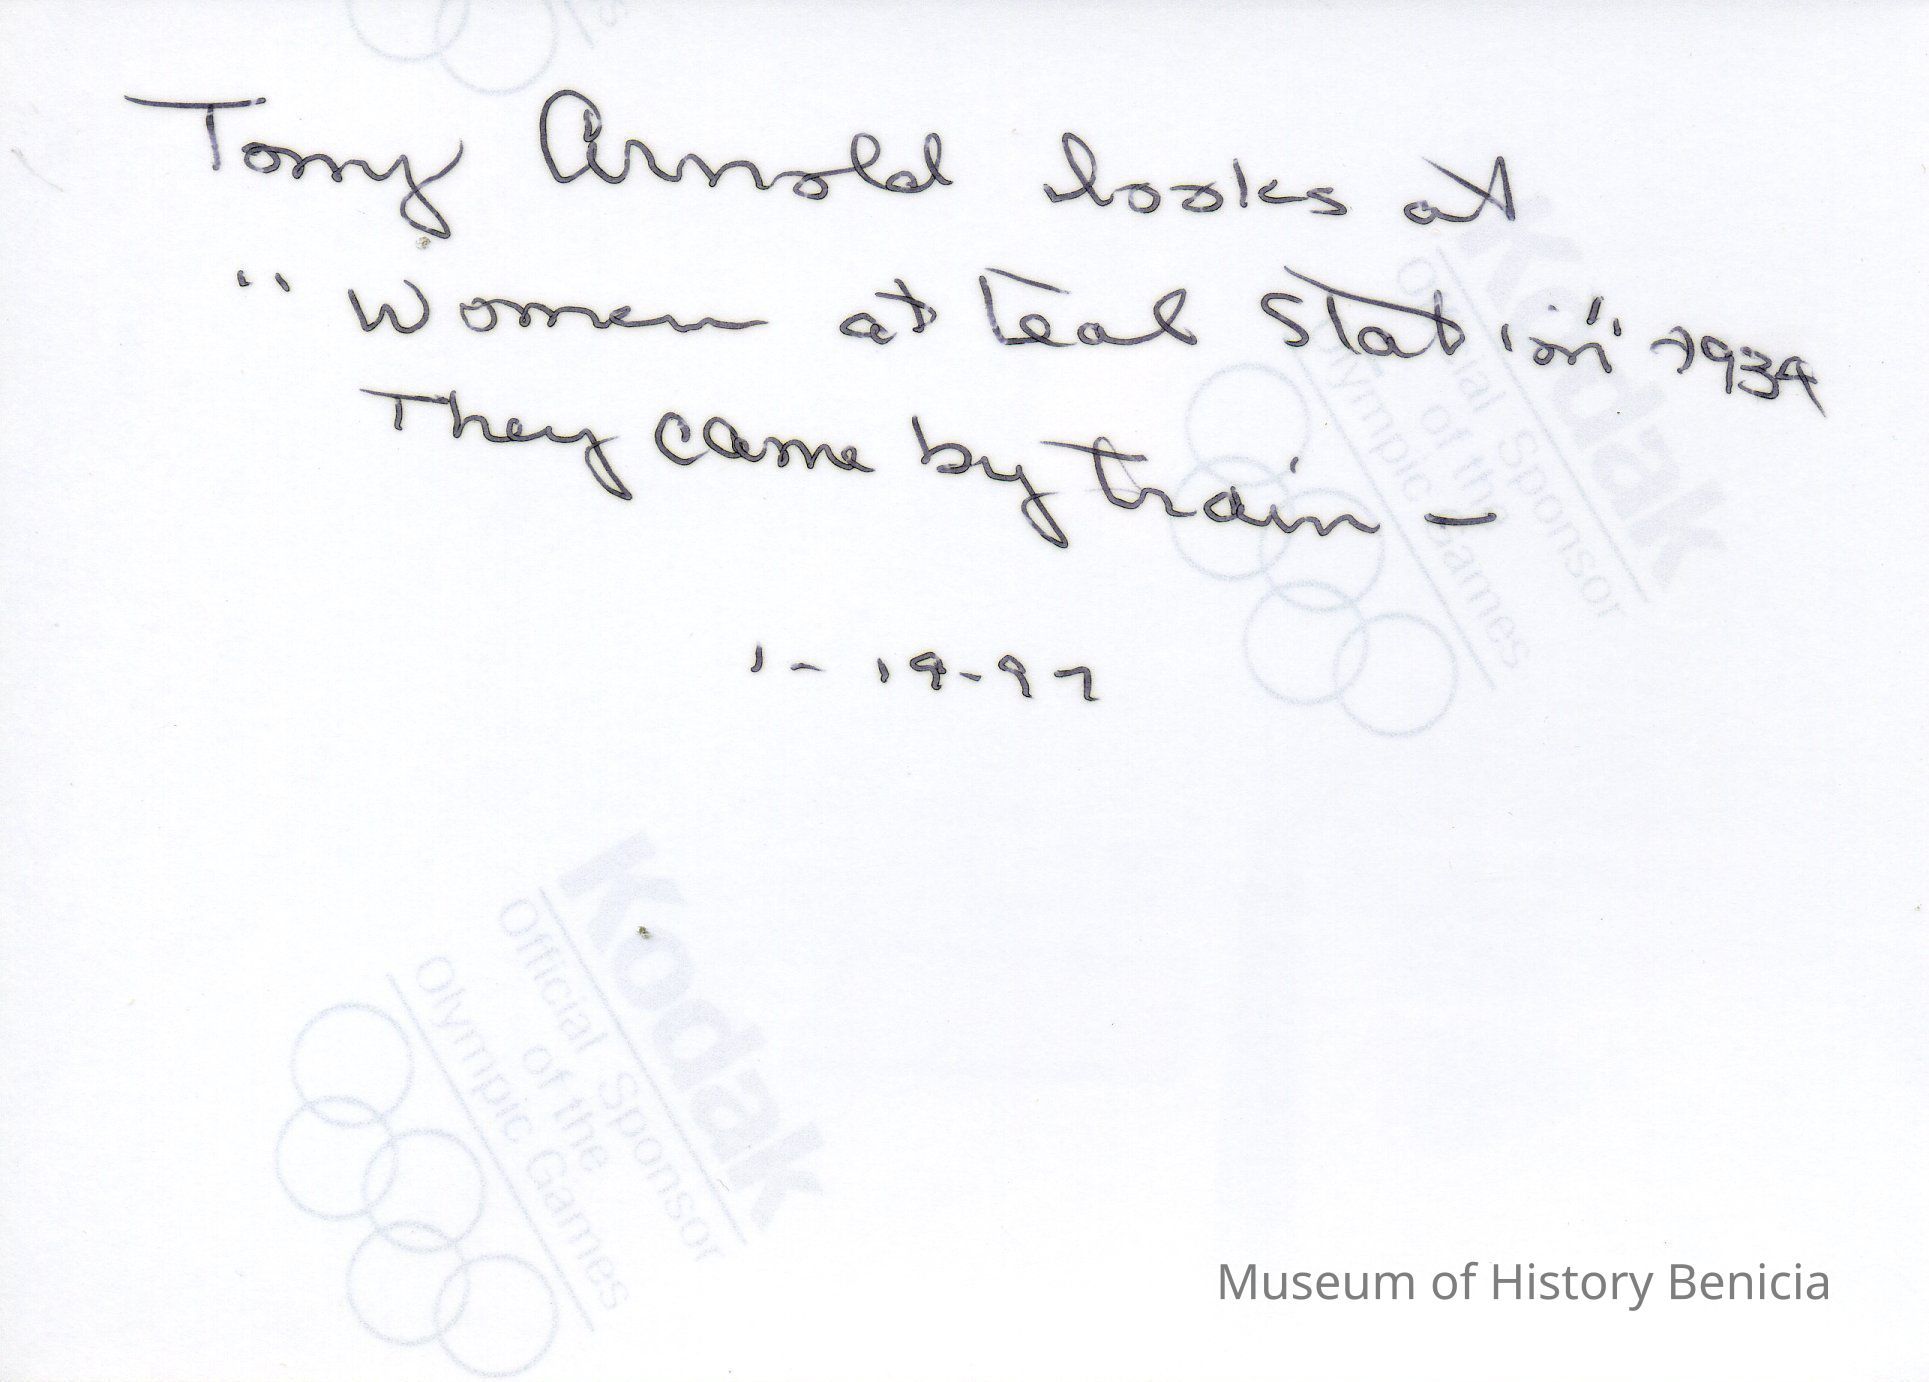 Tony Arnold looks at
"Women at Teal Station" 1934
They came by train –
1-19-97
Kodak
Official Sponsor
of the
Olympic Games
Kodak
Official Sponsor
of the
Olympic Games
Museum of History Benicia